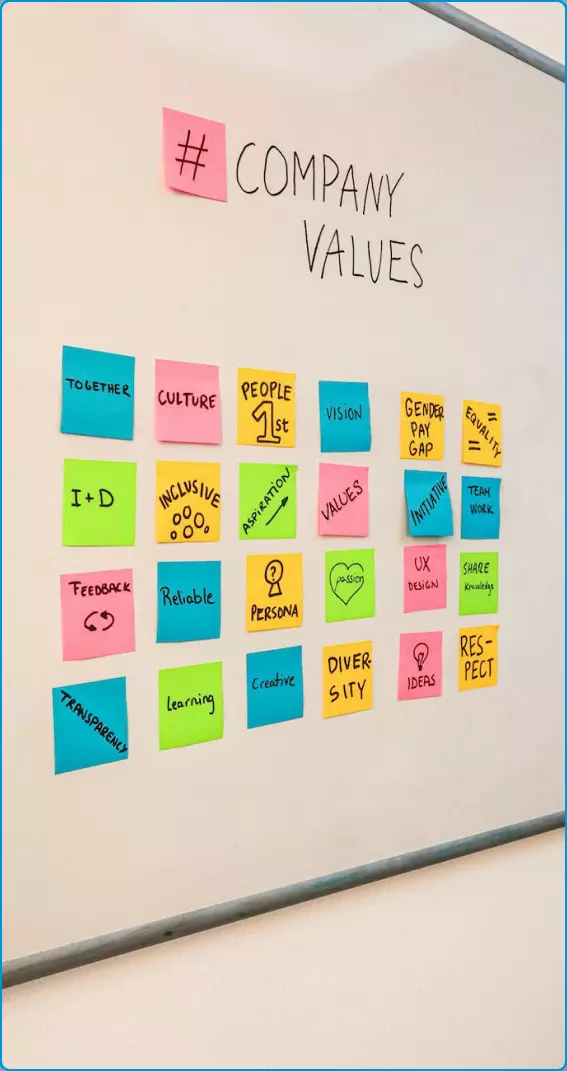 # COMPANY
VALUES
TOGETHER
CULTURE
PEOPLE
1st
VISION
GENDER
PAY
GAP
EQUALITY
I+D
INCLUSIVE
ASPIRATION
VALUES
INITIATIVE
TEAM
WORK
FEEDBACK
Reliable
?
PERSONA
passion
UX
DESIGN
SHARE
Knowledge
TRANSPARENCY
Learning
Creative
DIVER-
SITY
IDEAS
RES-
PECT